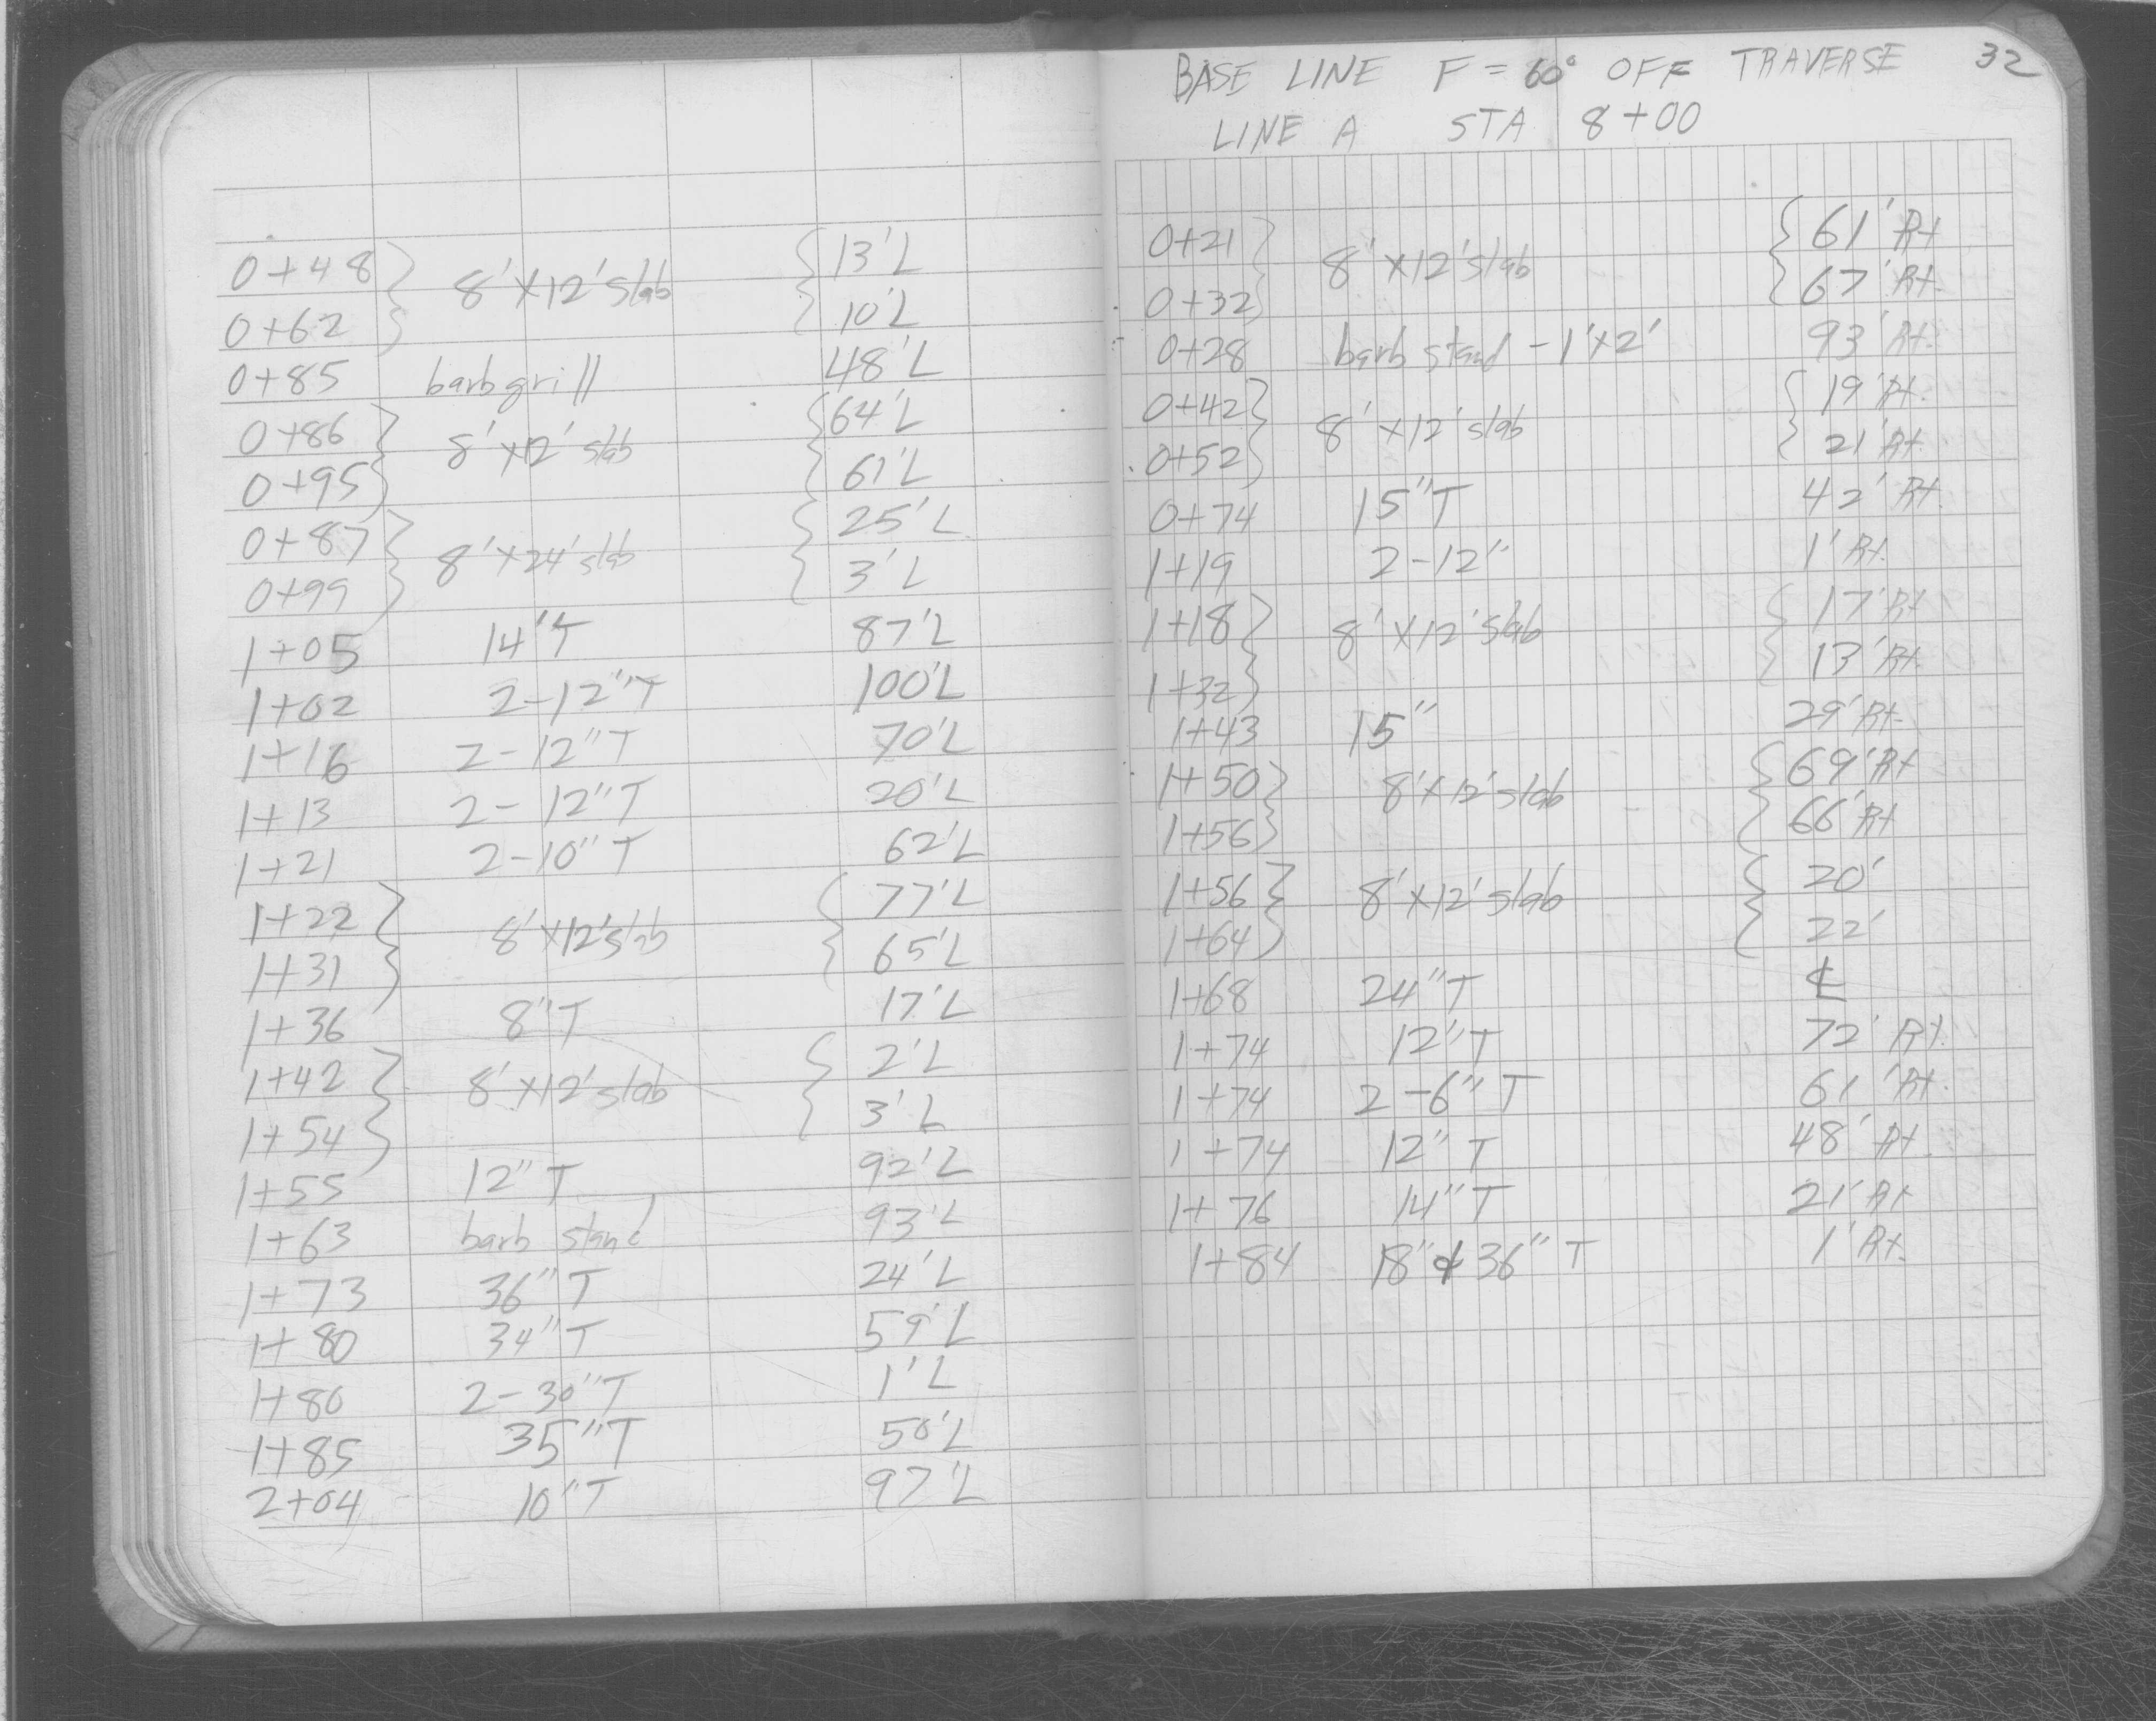 0+48 } 8'x12' slab { 13'L
0+62 } { 10'L
0+85 barb grill 48'L
0+86 } 8'x12' slab { 64'L
0+95 } { 61'L
0+87 } 8'x24' slab { 25'L
0+99 } { 3'L
1+05 14"T 87'L
1+02 2-12"T 100'L
1+16 2-12"T 70'L
1+13 2-12"T 20'L
1+21 2-10"T 62'L
1+22 } 8'x12' slab { 77'L
1+31 } { 65'L
1+36 8"T 17'L
1+42 } 8'x12' slab { 2'L
1+54 } { 3'L
1+55 12"T 92'L
1+63 barb stand 93'L
1+73 36"T 24'L
1+80 34"T 59'L
1+80 2-30"T 1'L
1+85 35"T 50'L
2+04 10"T 97'L
BASE LINE F = 60° OFF TRAVERSE 32
LINE A STA 8+00
0+21 } 8'x12' slab { 61' Rt
0+32 } { 67' Rt.
0+28 barb stand - 1'x2' 93' Rt.
0+42 } 8'x12' slab { 19' Rt.
0+52 } { 21' Rt.
0+74 15"T 42' Rt.
1+19 2-12" 1' Rt.
1+18 } 8'x12' slab { 17' Rt
1+32 } { 13' Rt.
1+43 15" 29' Rt.
1+50 } 8'x12' slab { 69' Rt
1+56 } { 66' Rt
1+56 } 8'x12' slab { 20'
1+64 } { 22'
1+68 24"T ℄
1+74 12"T 72' Rt.
1+74 2-6"T 61' Rt.
1+74 12"T 48' Rt.
1+76 14"T 21' Rt
1+84 18" & 36" T 1' Rt.